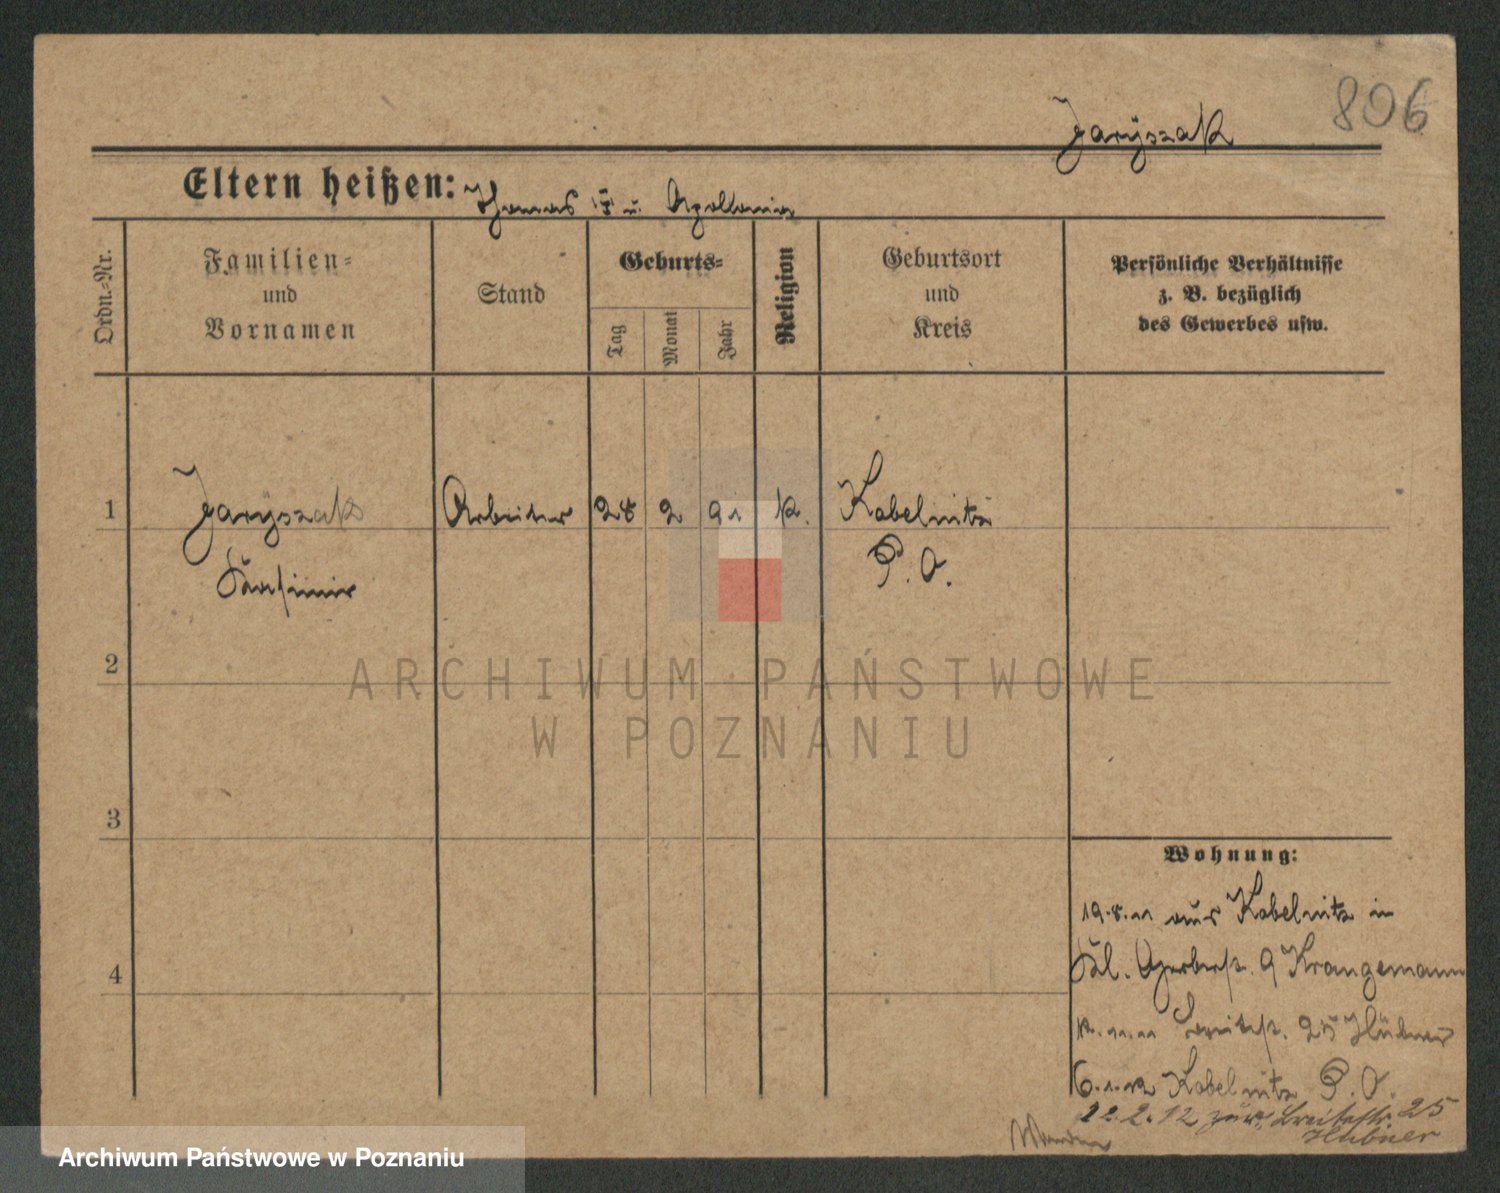 806
Jaryszak
Eltern heißen: Thomas u. Apollonia
Ordn.-Nr.
Familien-
und
Vornamen
Stand
Geburts-
Tag
Monat
Jahr
Religion
Geburtsort
und
Kreis
Persönliche Verhältnisse
z. B. bezüglich
des Gewerbes usw.
1
Jaryszak
Arbeiter
28
2
91
k.
Kobelnitz
P. O.
Kasimir
2
ARCHIWUM PAŃSTWOWE
W POZNANIU
3
Wohnung:
19.8.11 aus Kobelnitz in
4
Kl. Gerberstr. 9 Krangemann
12.11.11 Breitestr. 25 Hübner
6.1.12 Kobelnitz P. O.
22.2.12 zur. Breitestr. 25
Hübner
Archiwum Państwowe w Poznaniu